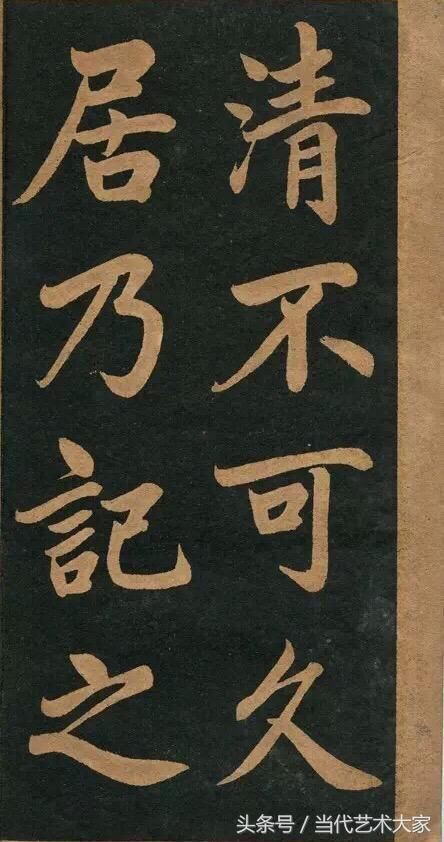 清不可久
居乃記之
头条号/当代艺术大家